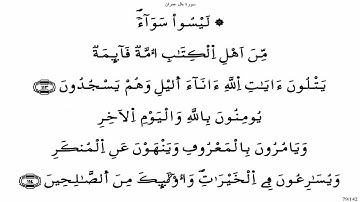 سورة ءال عمران
۞ لَيْسُواْ سَوَآءٗۖ
مِّنَ اَهْلِ اِ۬لْكِتَٰبِ أُمَّةٞ قَآئِمَةٞ
يَتْلُونَ ءَايَٰتِ اِ۬للَّهِ ءَانَآءَ اَ۬ليْلِ وَهُمْ يَسْجُدُونَ ١١٣
يُومِنُونَ بِاللَّهِ وَالْيَوْمِ اِ۬لَاخِرِ
وَيَامُرُونَ بِالْمَعْرُوفِ وَيَنْهَوْنَ عَنِ اِ۬لْمُنكَرِ
وَيُسَٰرِعُونَ فِے اِ۬لْخَيْرَٰتِۖ وَأُوْلَٰٓئِكَ مِنَ اَ۬لصَّٰلِحِينَ ١١٤